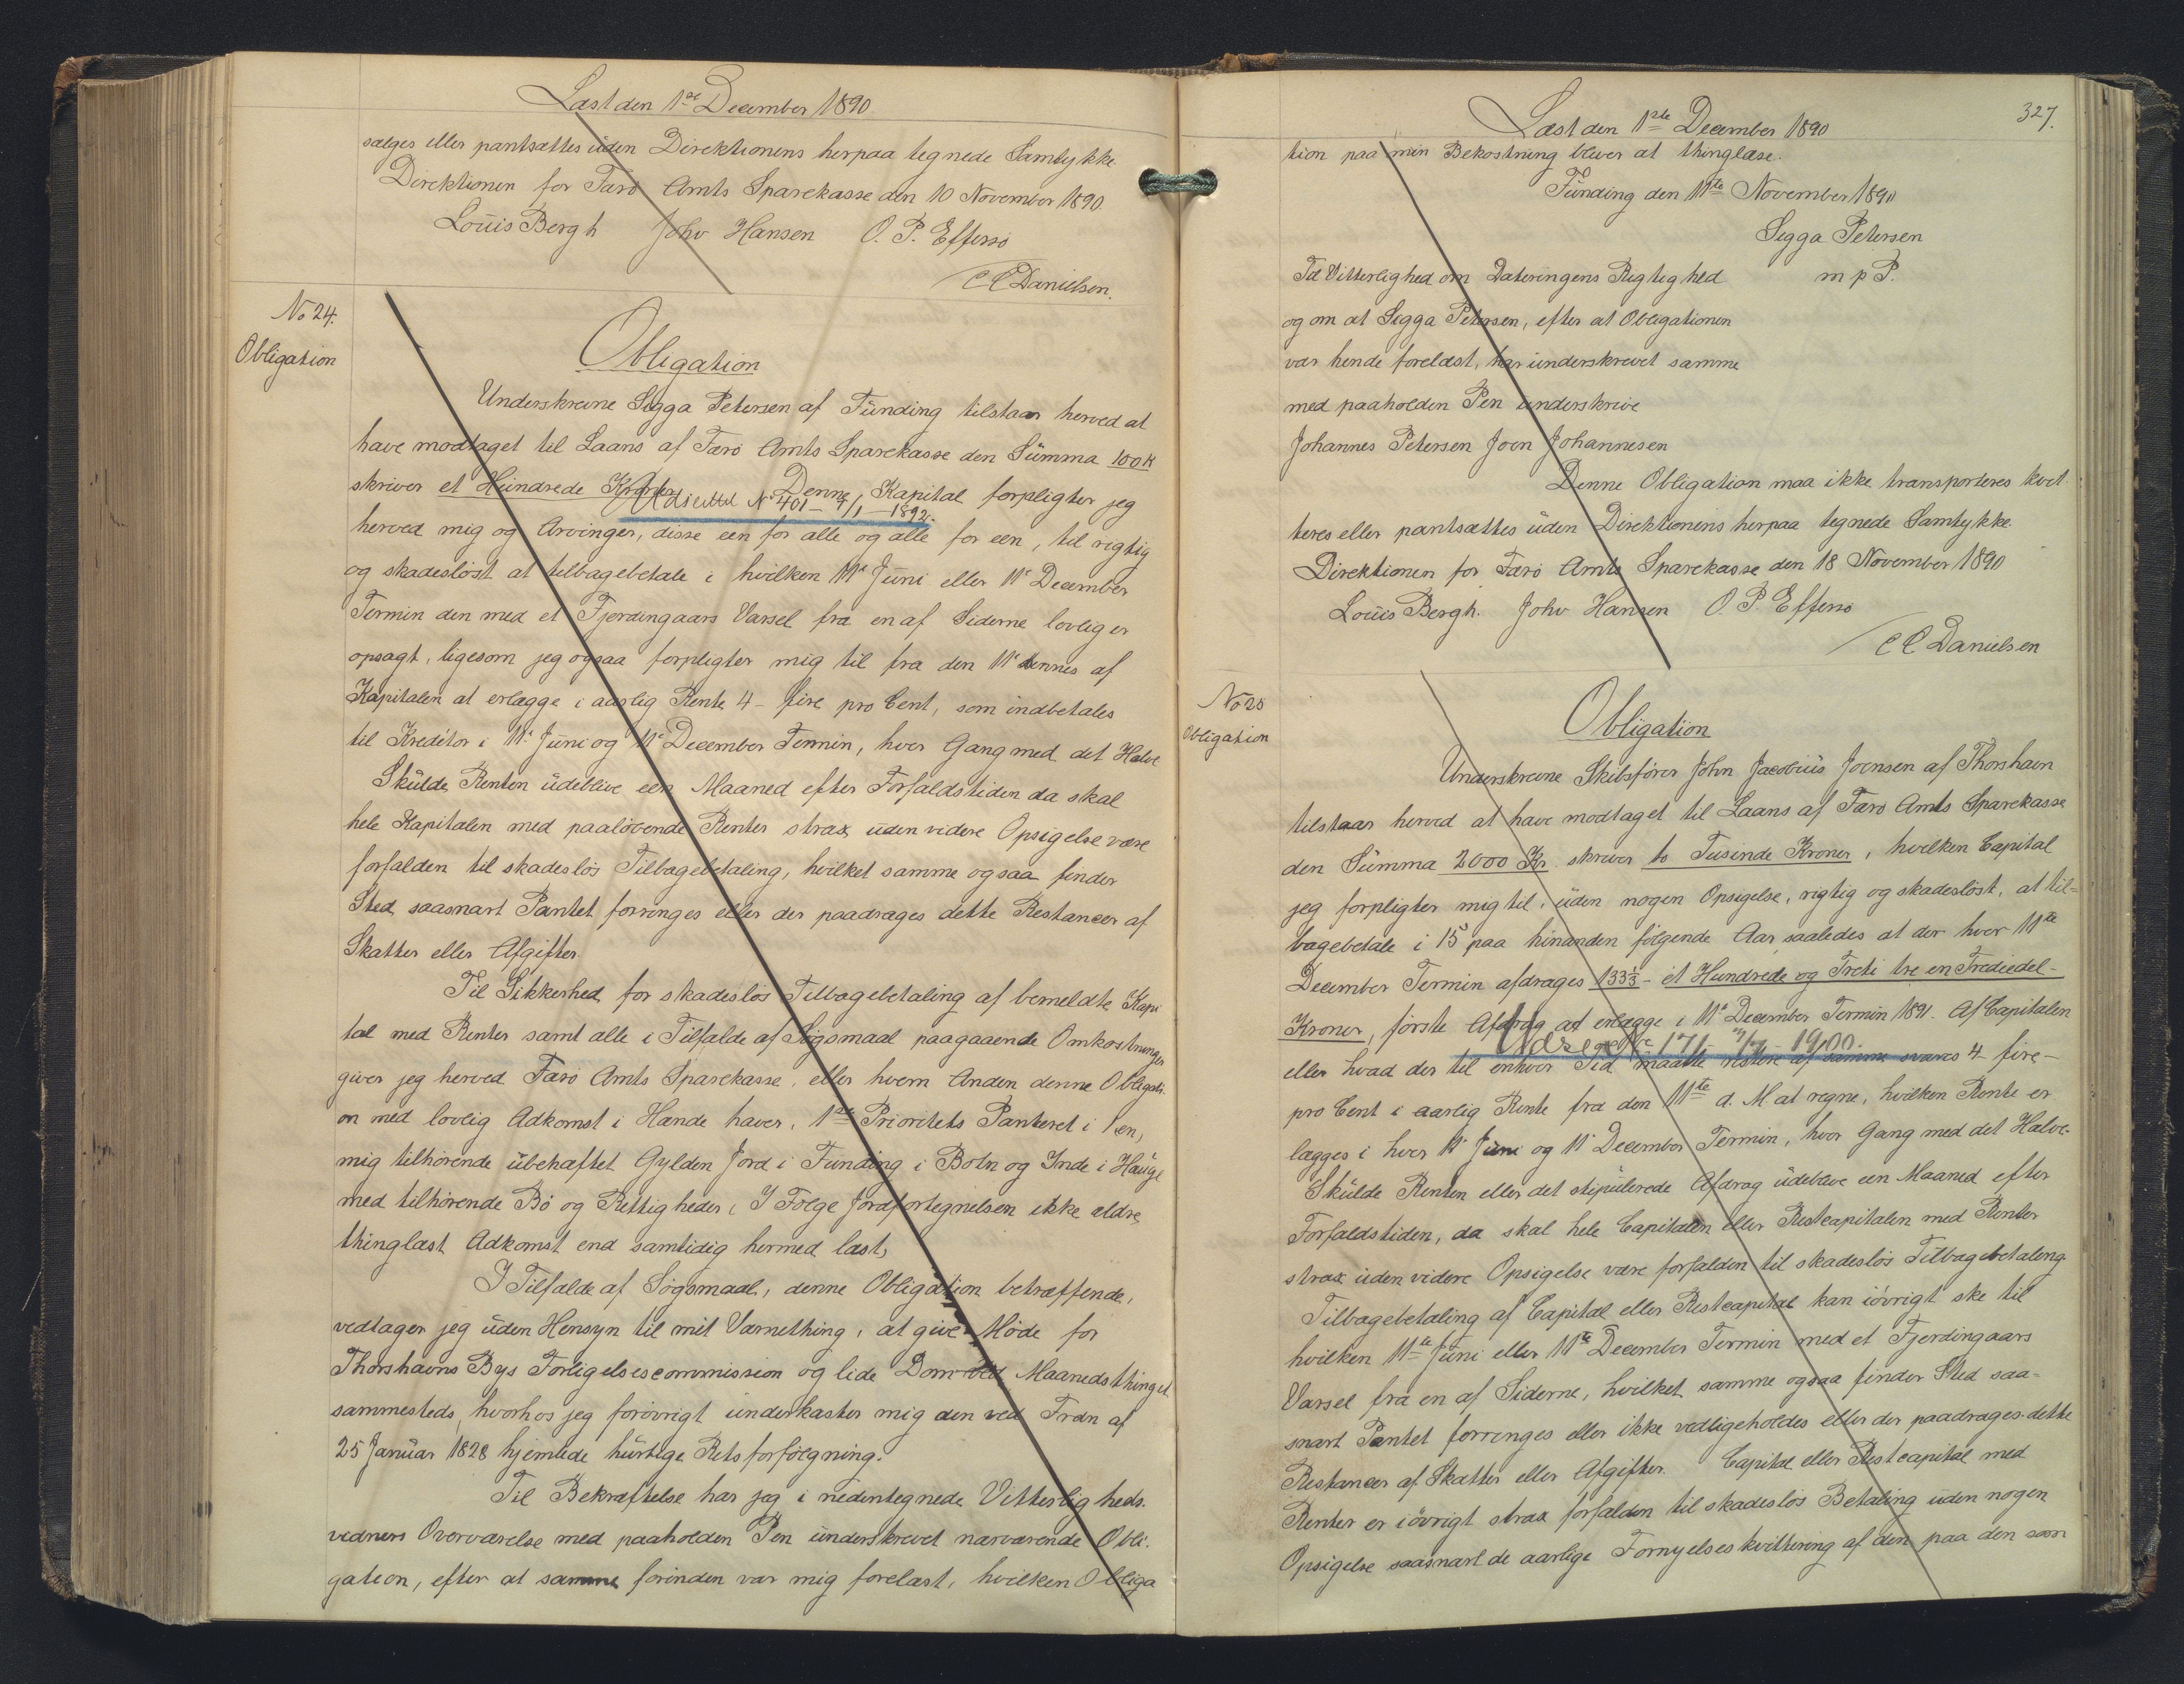 Læst den 1ste December 1890
sælges eller pantsættes uden Direktionens herpaa tegnede Samtykke
Direktionen for Færø Amts Sparekasse den 10 November 1890.
Louis Bergh Johv Hansen O. P. Effersø
C C Danielsen.
No 24.
Obligation
Obligation
Underskrevne Sigga Petersen af Funding tilstaar herved at
have modtaget til Laans af Færø Amts Sparekasse den Summa 100 K
skriver et Hundrede Kroner Denne Kapital forpligter jeg
Udslettet No 401 - 7/1 - 1892.
herved mig og Arvinger, disse een for alle og alle for een, til rigtig
og skadesløst at tilbagebetale i hvilken 11te Juni eller 11te December
Termin den med et Fjerdingaars Varsel fra en af Siderne lovlig er
opsagt, ligesom jeg ogsaa forpligter mig til fra den 11te dennes af
Kapitalen at erlægge i aarlig Rente 4 - fire pro Cent, som indbetales
til Kreditor i 11te Juni og 11te December Termin, hver Gang med det Halve
Skulde Renten udeblive een Maaned efter Forfaldstiden da skal
hele Kapitalen med paaløbende Renter strax uden videre Opsigelse være
forfalden til skadesløs Tilbagebetaling, hvilket samme ogsaa finder
Sted saasnart Pantet forringes eller der paadrages dette Restancer af
Skatter eller Afgifter
Til Sikkerhed for skadesløs Tilbagebetaling af bemeldte Kapi
tal med Renter samt alle i Tilfælde af Søgsmaal paagaaende Omkostninger
giver jeg herved Færø Amts Sparekasse, eller hvem Anden denne Obligati-
on med lovlig Adkomst i Hænde haver, 1ste Prioritets Panteret i 1 en,
mig tilhørende ubehæftet Gylden Jord i Funding i Botn og Inde i Hauge
med tilhørende Bø og Rettigheder, I Følge Jordfortegnelsen ikke ældre
thinglæst Adkomst end samtidig hermed læst,
I Tilfælde af Søgsmaal, denne Obligation betræffende,
vedtager jeg uden Hensyn til mit Værnething, at give Møde for
Thorshavns Bys Forligelsescommission og lide Dom ved Maanedsthinget
sammesteds, hvorhos jeg forøvrigt underkaster mig den ved Frdn af
25 Januar 1828 hjemlede hurtige Retsforfølgning.
Til Bekræftelse har jeg i nedentegnede Vitterligheds-
vidners Overværelse med paaholden Pen underskrevet nærværende Obli-
gation, efter at samme forinden var mig forelæst, hvilken Obliga
327.
Læst den 1ste December 1890
tion paa min Bekostning bliver at thinglæse.
Funding den 11te November 1890
Sigga Petersen
m p P.
Til Vitterlighed om Dateringens Rigtighed
og om at Sigga Petersen, efter at Obligationen
var hende forelæst, har underskrevet samme
med paaholden Pen underskrive
Johannes Petersen Joen Johannesen
Denne Obligation maa ikke transporteres kvit
teres eller pantsættes uden Direktionens herpaa tegnede Samtykke
Direktionen for Færø Amts Sparekasse den 18 November 1890
Louis Bergh. Johv Hansen O P. Effersø
C C Danielsen
No 25
Obligation
Obligation
Underskrevne Skibsfører John Jacobius Joensen af Thorshavn
tilstaar herved at have modtaget til Laans af Færø Amts Sparekasse
den Summa 2000 Kr. skriver to Tusinde Kroner, hvilken Capital
jeg forpligter mig til, uden nogen Opsigelse, rigtig og skadesløst, at til-
bagebetale i 15 paa hinanden følgende Aar saaledes at der hver 11te
December Termin afdrages 133⅓ - et Hundrede og Treti tre en Trediedel -
Kroner, første Afdrag at erlægge i 11te December Termin 1891. Af Capitalen
Udslettet No 171 - 1900.
eller hvad der til enhver Tid maatte restere af samme svares 4 - fire -
pro Cent i aarlig Rente fra den 11te d. M at regne, hvilken Rente er
lægges i hver 11te Juni og 11te December Termin, hver Gang med det Halve.
Skulde Renten eller det stipulerede Afdrag udeblive een Maaned efter
Forfaldstiden, da skal hele Capitalen eller Restcapitalen med Renter
strax uden videre Opsigelse være forfalden til skadesløs Tilbagebetaling
Tilbagebetaling af Capital eller Restcapital kan iøvrigt ske til
hvilken 11te Juni eller 11te December Termin med et Fjerdingaars
Varsel fra en af Siderne, hvilket samme ogsaa finder Sted saa-
snart Pantet forringes eller ikke vedligeholdes eller der paadrages dette
Restancer af Skatter eller Afgifter. Capital eller Restcapital med
Renter er iøvrigt strax forfalden til skadesløs Betaling uden nogen
Opsigelse saasnart de aarlige Fornyelseskvittering af den paa den som